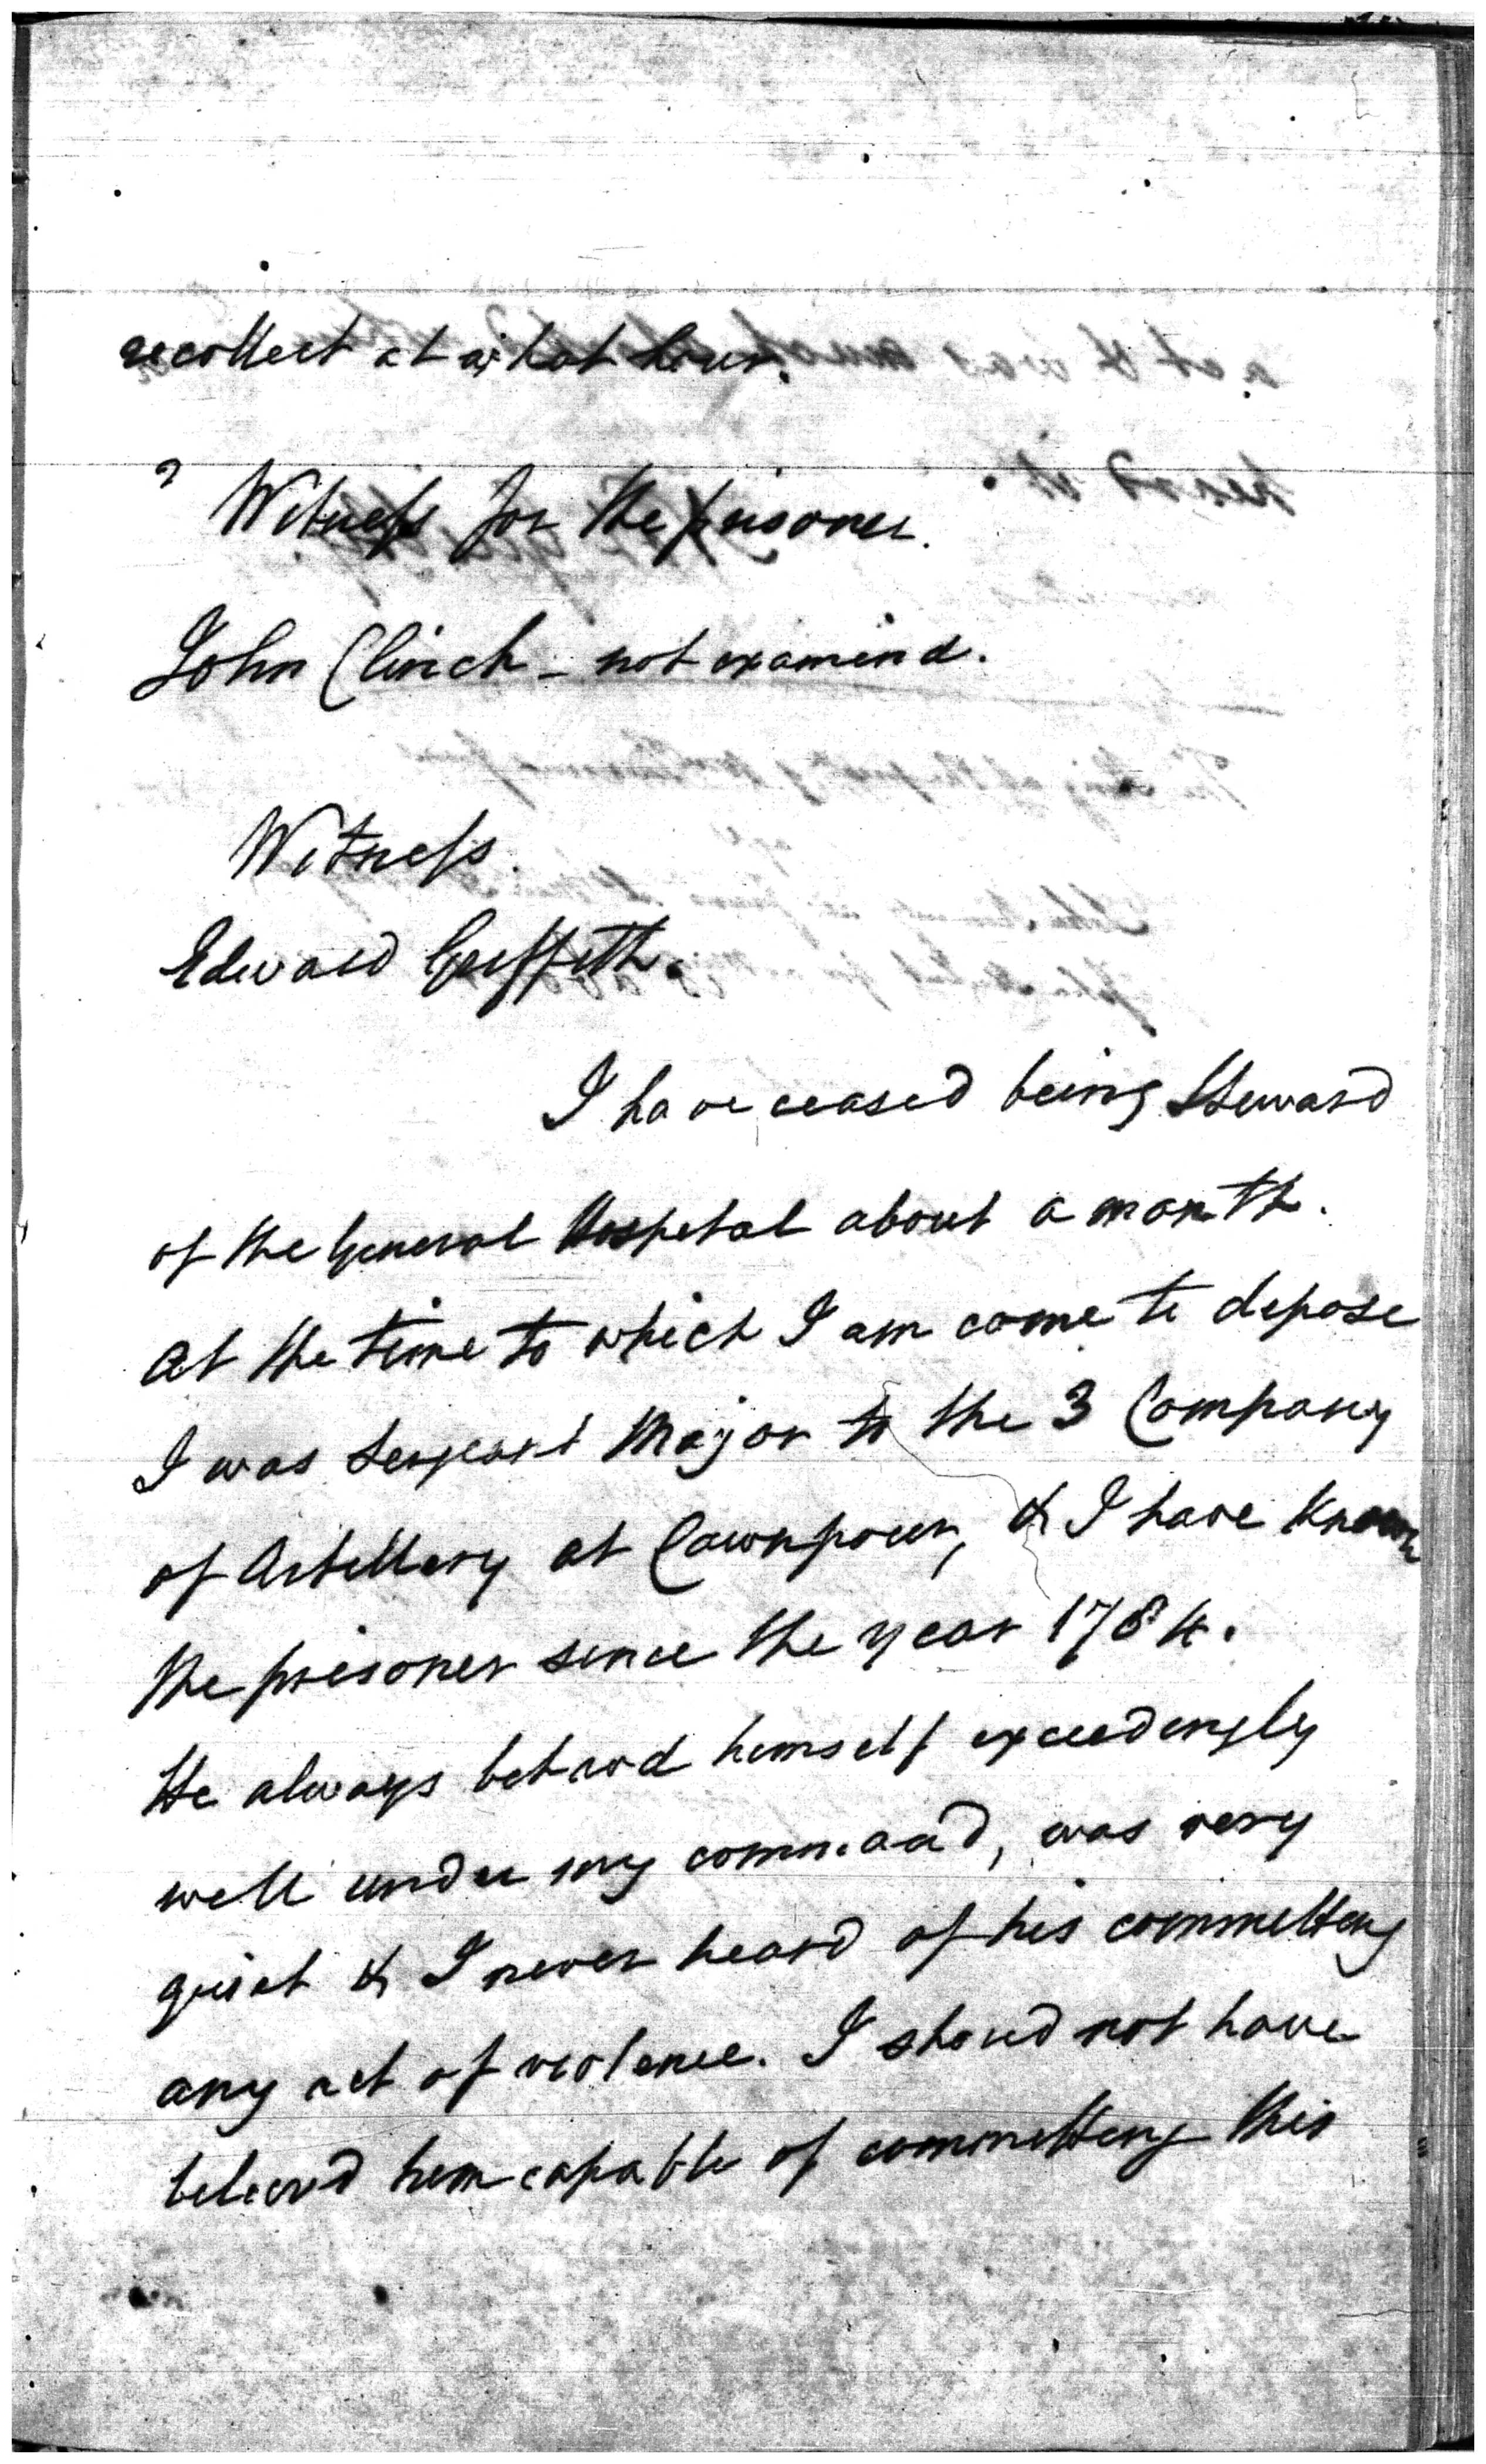 recollect at what hour.
2 Witness for the prisoner.
John Clinch - not examind.
Witness.
Edward Griffith.
I have ceased being Steward
of the General Hospital about a month.
At the time to which I am come to depose
I was Sergeant Major to the 3 Company
of Artillery at Cawnpour, & I have known
the prisoner since the year 1784.
He always behavd himself exceedingly
well under my command, was very
quiet & I never heard of his committing
any act of violence. I shoud not have
believd him capable of committing this